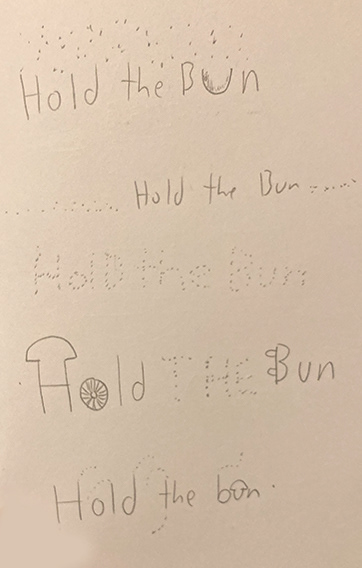 Hold the Bun
Hold the Bun
Hold the Bun
Hold THE Bun
Hold the bun.